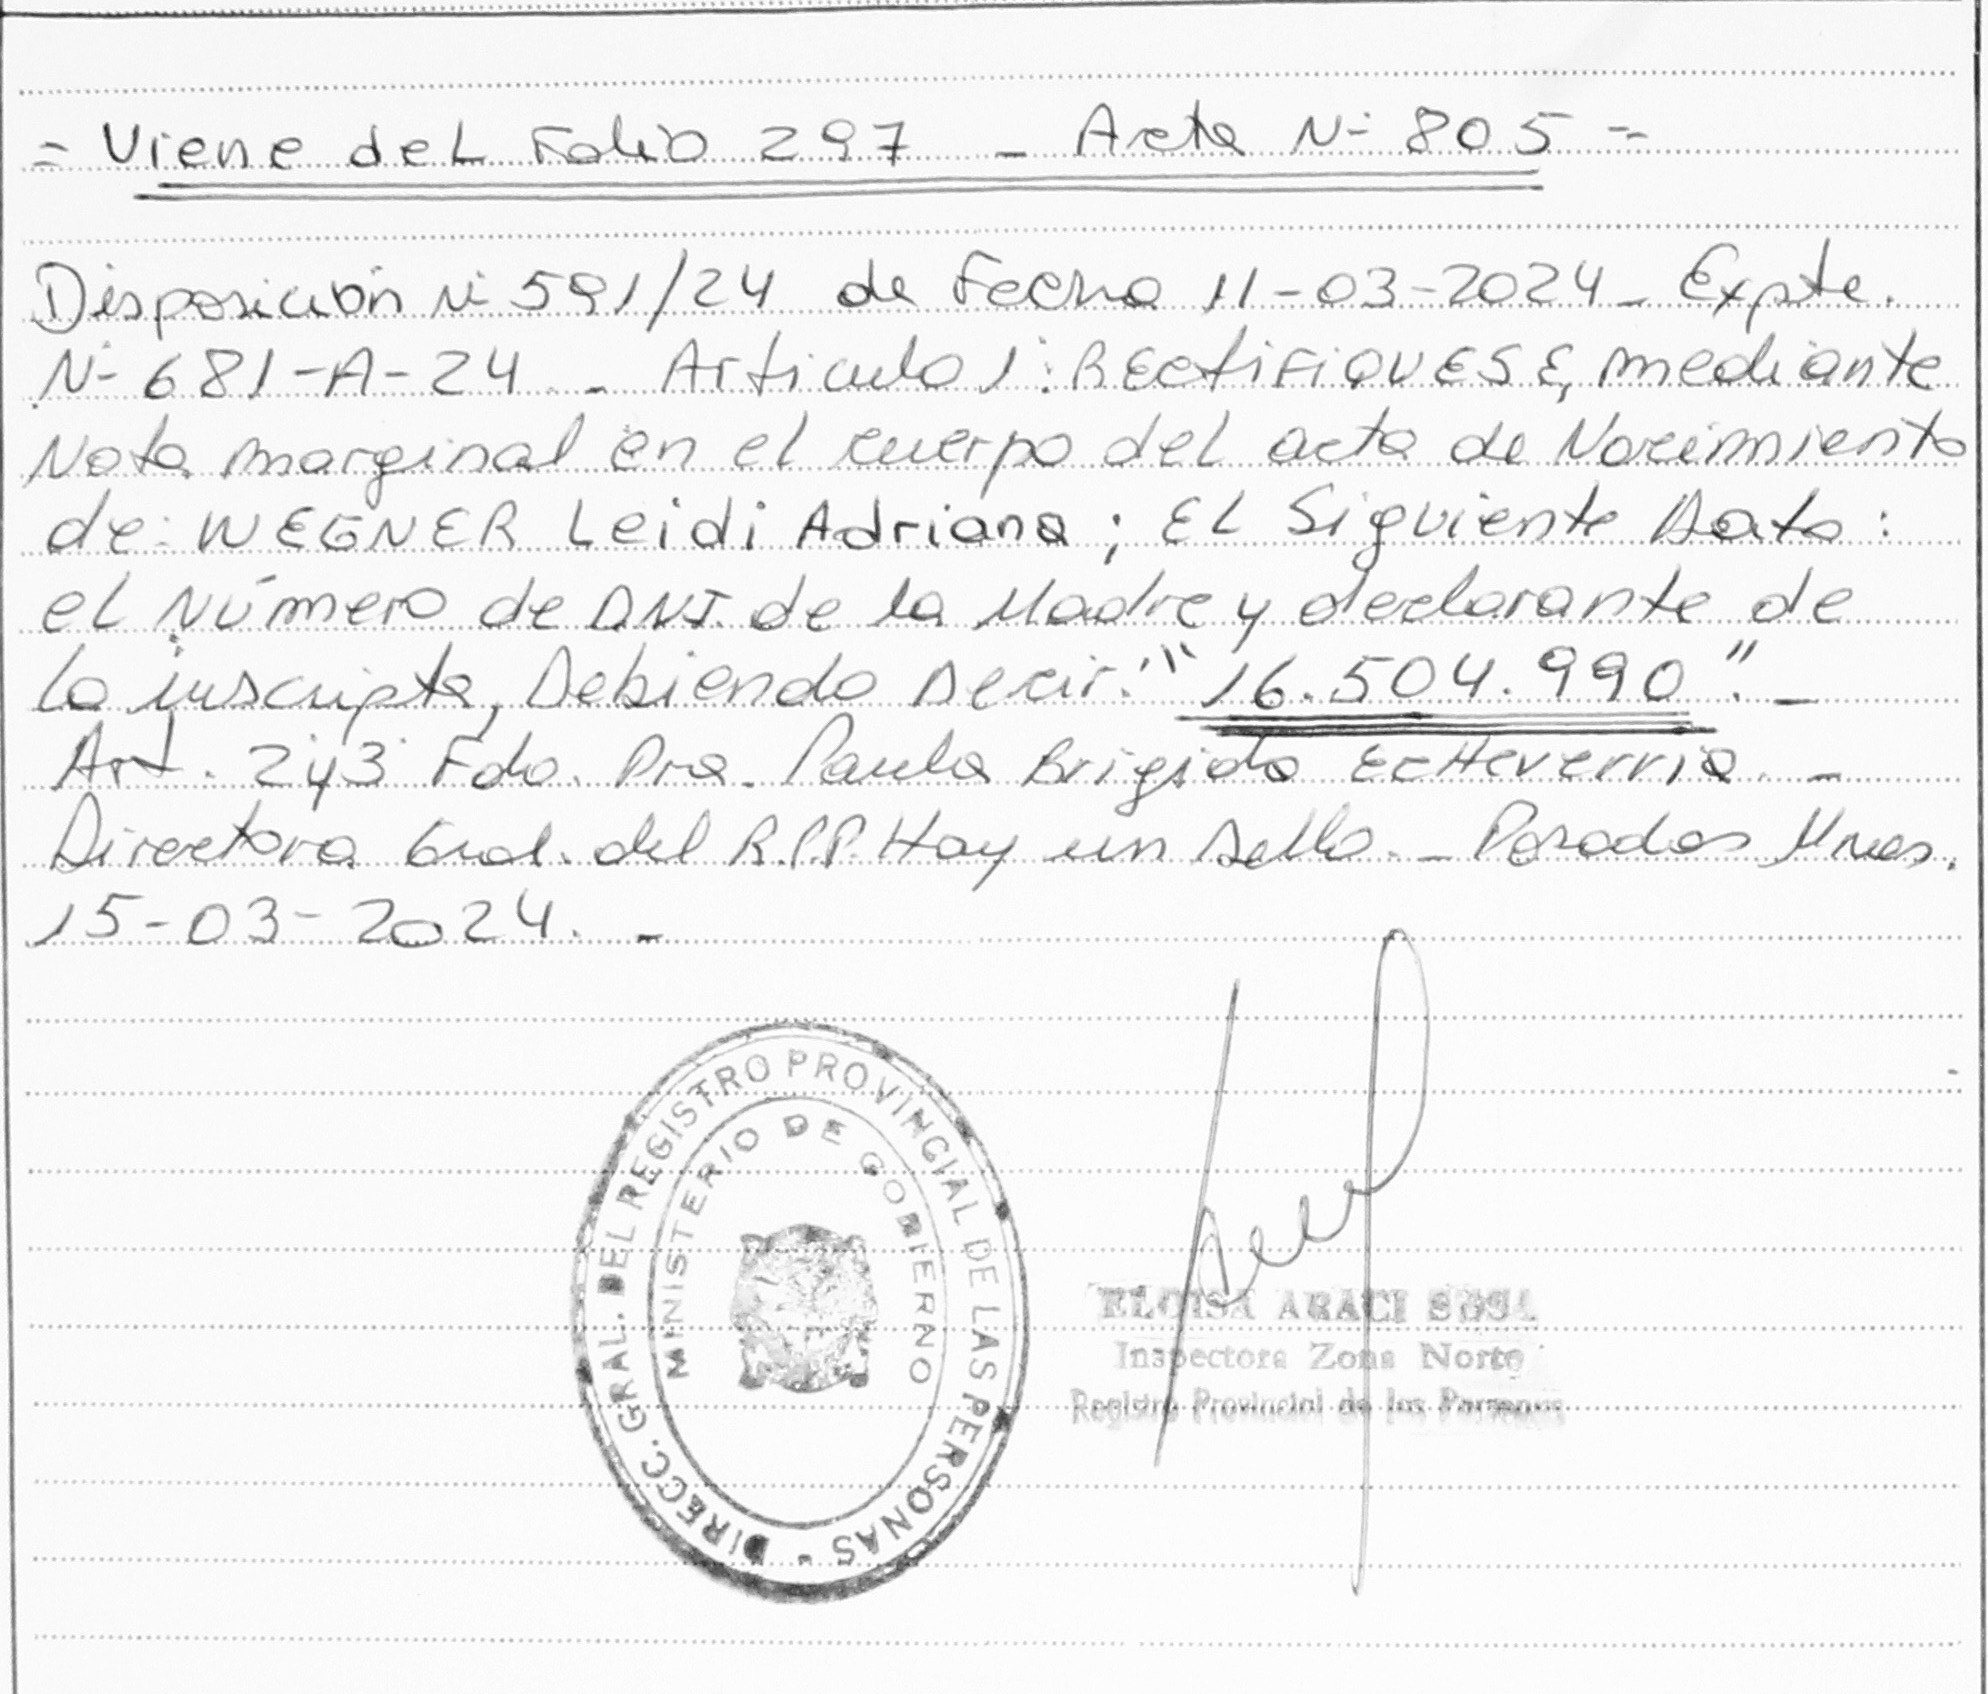 = Viene del Folio 297 - Acta Nº 805 =
Disposición Nº 591/24 de Fecha 11-03-2024 - Expte.
Nº 681-A-24 - Articulo 1: RECTIFIQUESE, mediante
Nota marginal en el cuerpo del acta de Nacimiento
de: WEGNER Leidi Adriana; El Siguiente Dato:
el Número de DNI. de la Madre y declarante de
la inscripta, Debiendo Decir: "16.504.990". -
Art. 2 y 3 Fdo. Dra. Paula Brigida Echeverria. -
Directora Gral. del R.P.P. Hay un Sello. - Posadas Mnes.
15-03-2024. -
DIRECC. GRAL. DEL REGISTRO PROVINCIAL DE LAS PERSONAS -
MINISTERIO DE GOBIERNO
ELOISA ARACI SOSA
Inspectora Zona Norte
Registro Provincial de las Personas